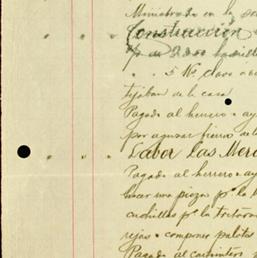 Ministrado en la
Construcción
p/c de 2000 ladrillos
" " 5 No. clavo
tejaban de la casa
Pagado al herrero
por aguzar fierro de l
Labor las Mer
Pagado al herrero
hacer una pieza pa. la
cuchillas pa. la
rejas = componer palotes
Pagado al carpintero